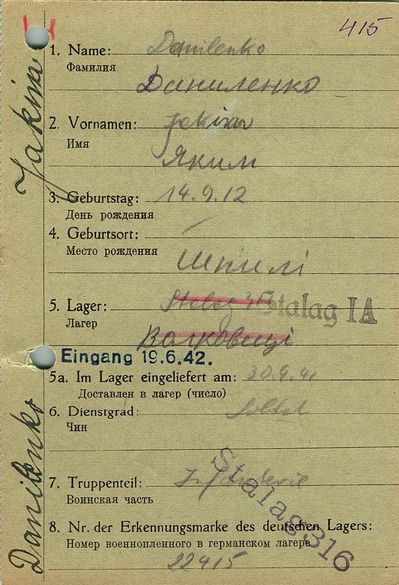 415
1. Name: Danilenko
Фамилия
Даниленко
2. Vornamen: Jakim
Имя
Яким
3. Geburtstag: 14.9.12
День рождения
4. Geburtsort:
Место рождения
Шпилі
5. Lager: Stalag Stalag IA
Лагер
Eingang 19.6.42.
5a. Im Lager eingeliefert am: 30.9.41
Доставлен в лагер (число)
6. Dienstgrad: Soldat
Чин
7. Truppenteil: Infanterie
Воинская часть
Stalag 316
8. Nr. der Erkennungsmarke des deutschen Lagers:
Номер военнопленного в германском лагере
22415
Jakim
Danilenko